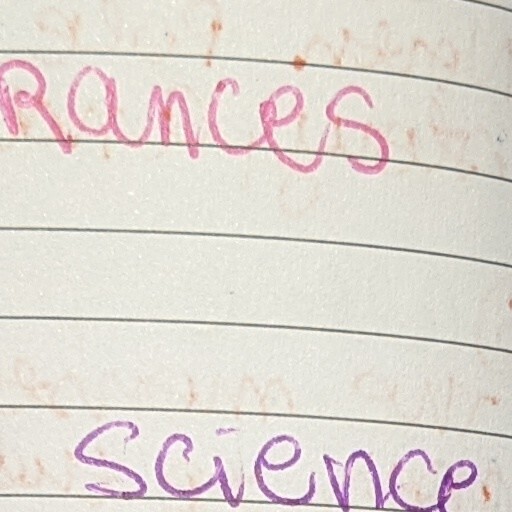 Rances
science